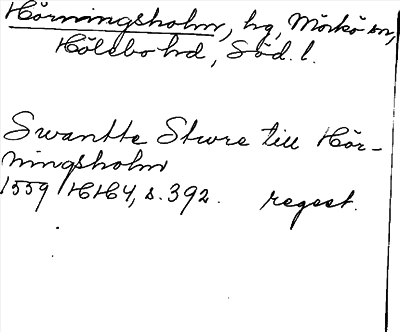 Hörningsholm, hg, Mörkö sn,
Hölebo hd, Söd. l.
Swantte Sture till Hör-
ningsholm
1559 HH4, s. 392. regest.